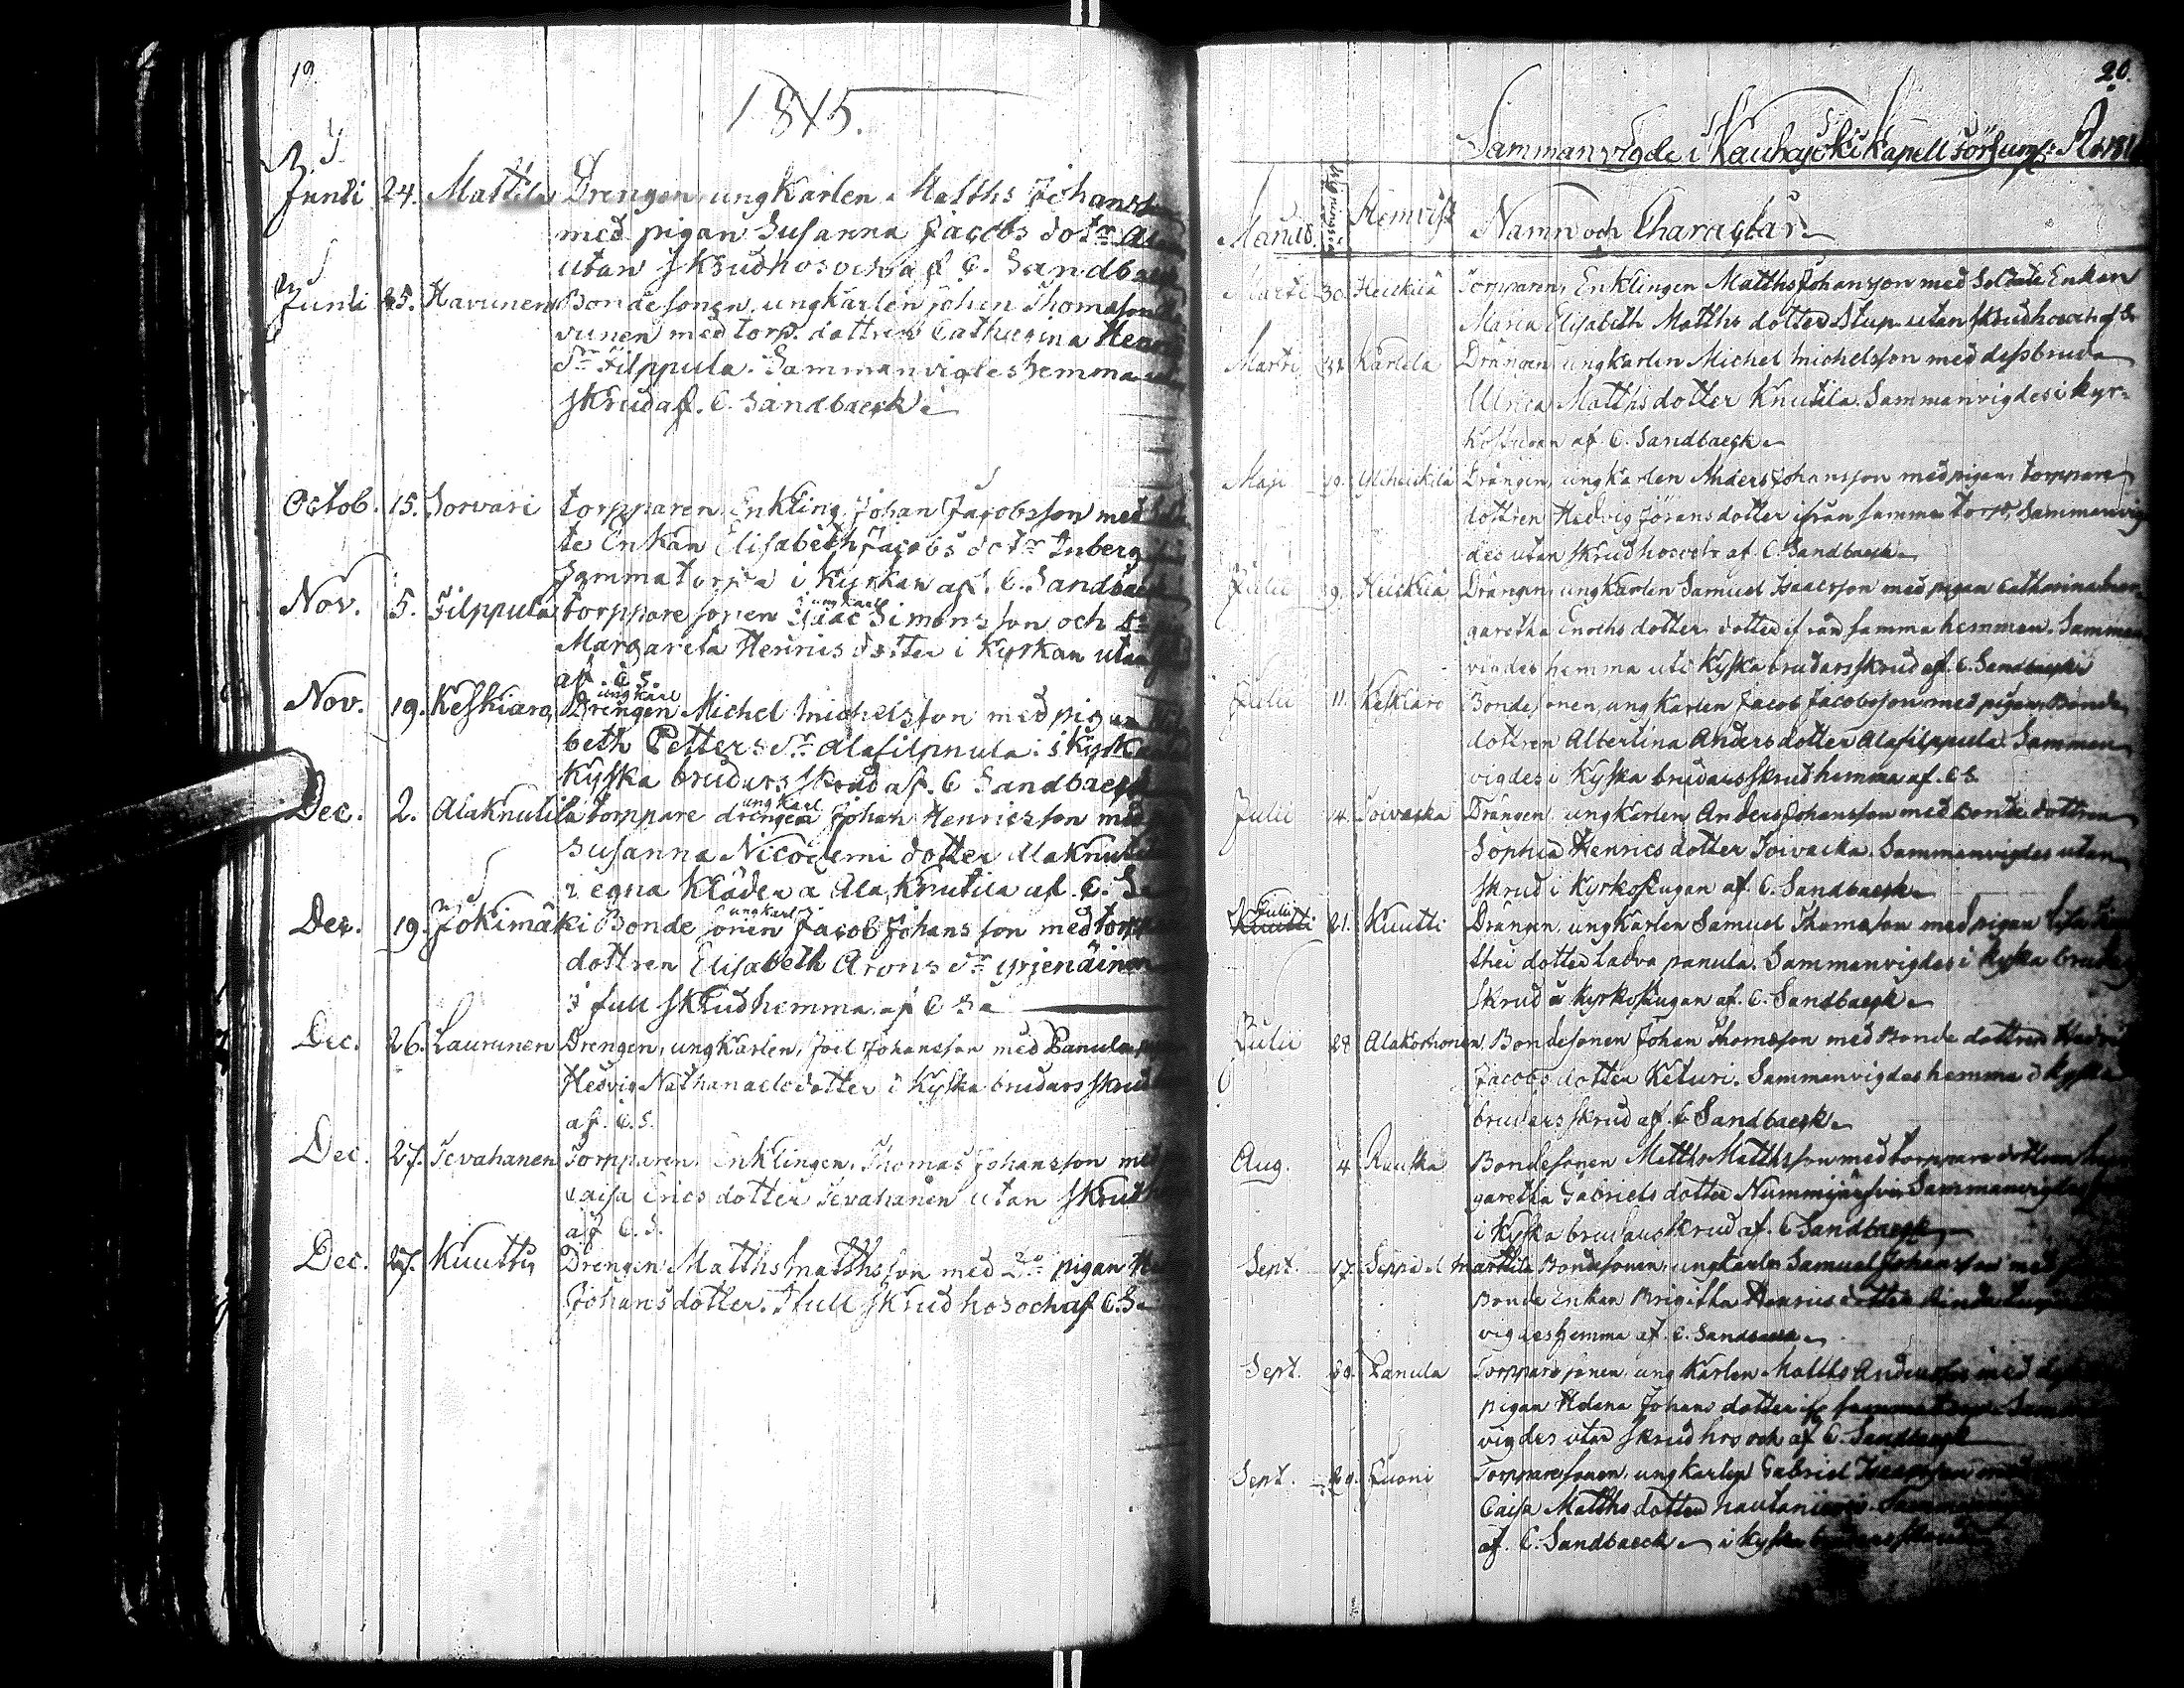 19
1845.
Junii 24. Mattila Drengen ungkarlen Matths Johansson
med pigan Susanna Jacobs dotr
utan skrud hos och af C. Sandbaeck
Junii 25. Havunen Bondesonen, ungkarlen Johan Thomasson
vunen med torp. dottren Catharina Henrics
Dr Filppula. Sammanvigdes hemma
skrud af. C. Sandbaeck
Octob. 15. Sorvari torpparen Enkling Johan Jacobsson med
te Enkan Elisabeth Jacobs dotr Inberg
samma torpa i Kyrkan af. C. Sandbaeck
Nov. 5. Filppula torppare sonen ungkarl Isaac Simonsson och
Margareta Henrics dotter i Kyrkan utan
af C. S.
Nov. 19. Keskiaro ungkarl Drengen Michel Michelsson med pigan
beth Petters Dr Alafilppula i Kyska
Kyska brudars skrud af. C Sandbaeck
Dec. 2. Alaknutila torppare drengen ungkarl Johan Henricsson med
Susanna Nicodemi dotter Alaknutila
i egna Kläder a Ala Knutila af C. Sa
Dec. 19. Jokimäki Bonde sonen ungkarl Jacob Johansson med torppare
dottren Elisabeth Arons Dr Yrjenäinen
i full skrud hemma af C Sa
Dec. 26. Laurunen Drengen, ungkarlen, Joel Johansson med Panula
Hedvig Nathanaels dotter i Kyska brudars skrud
af. C. S.
Dec. 27. Tevahanen Torpparen, Enklingen, Thomas Johansson med
Caisa Erics dotter Tevahanen utan skrud
af C. S.
Dec. 27. Kuutti Drengen Matths Matthsson med pigan
Johans dotter. I full skrud hos och af C. Sa
20.
Sammanvigde i Kauhajoki Kapell Församl: År 181
Månad. Hemvist Namn och Charactär
Martii 30. Heickilä Torpparen, Enklingen Matths Johansson med Soldate Enkan
Maria Elisabeth Matths dotter Stup. utan skrud hos och af C.
Martii Karlela Drängen, ungkarlen Michel Michelsson med dess bruda
Ulrica Matths dotter Knutila. Sammanvigdes i kyr-
kostugan af C. Sandbaeck
Maji 19. Yliheickilä Drängen, ungkarlen Anders Johansson med pigan, torppare
dottren Hedvig Jörans dotter ifrån samma torp. Sammanvig
des utan skrud hos och af C. Sandbaeck
Julii 9. Heickilä Drängen, ungkarlen Samuel Isaacsson med pigan Catharina Mar
garetha Enochs dotter, dotter ifrån samma hemman. Samman
vigdes hemma uti Kyska brudars skrud af. C. Sandbaeck
Julii 11. Keskiaro Bonde sonen, ungkarlen Jacob Jacobsson med pigan, Bonde
dottren Albertina Anders dotter Alafilppula. Samman
vigdes i Kyska brudars skrud hemma af. C S.
Julii 14. Toivacka Drängen, ungkarlen Anders Johansson med Bonde dottren
Sophia Henrics dotter Toivacka. Sammanvigdes utan
skrud i Kyrkostugan af C. Sandbaeck
Julii 21. Kuutti Drängen, ungkarlen Samuel Thomasson med pigan Lisa
thei dotter Ladva panula. Sammanvigdes i Kyska brudars
skrud i Kyrkostugan af. C. Sandbaeck
Julii 28 Alakorhonen Bondesonen Johan Thomasson med Bonde dottren Hedvig
Jacobs dotter Keturi. Sammanvigdes hemma i Kyska
brudars skrud af. C Sandbaeck
Aug. 4 Rauska Bondesonen Matths Matthsson med torppare dottren Mar
garetha Gabriels dotter Nummijärfvi Sammanvigdes
i Kyska brudars skrud af. C Sandbaeck
Sept. 17. Seppä Marttila Bondesonen, ungkarlen Samuel Johansson med
Bonde Enkan Brigitha Henrics dotter
vigdes hemma af. C. Sandbaeck
Sept. Panula Torppare sonen, ungkarlen Matths Andersson med
pigan Helena Johans dotter if samma
vigdes utan skrud hos och af C. Sandbaeck
Sept. 29. Luoni Torpparesonen, ungkarlen Gabriel
Caisa Matths dotter
af. C. Sandbaeck i Kyska